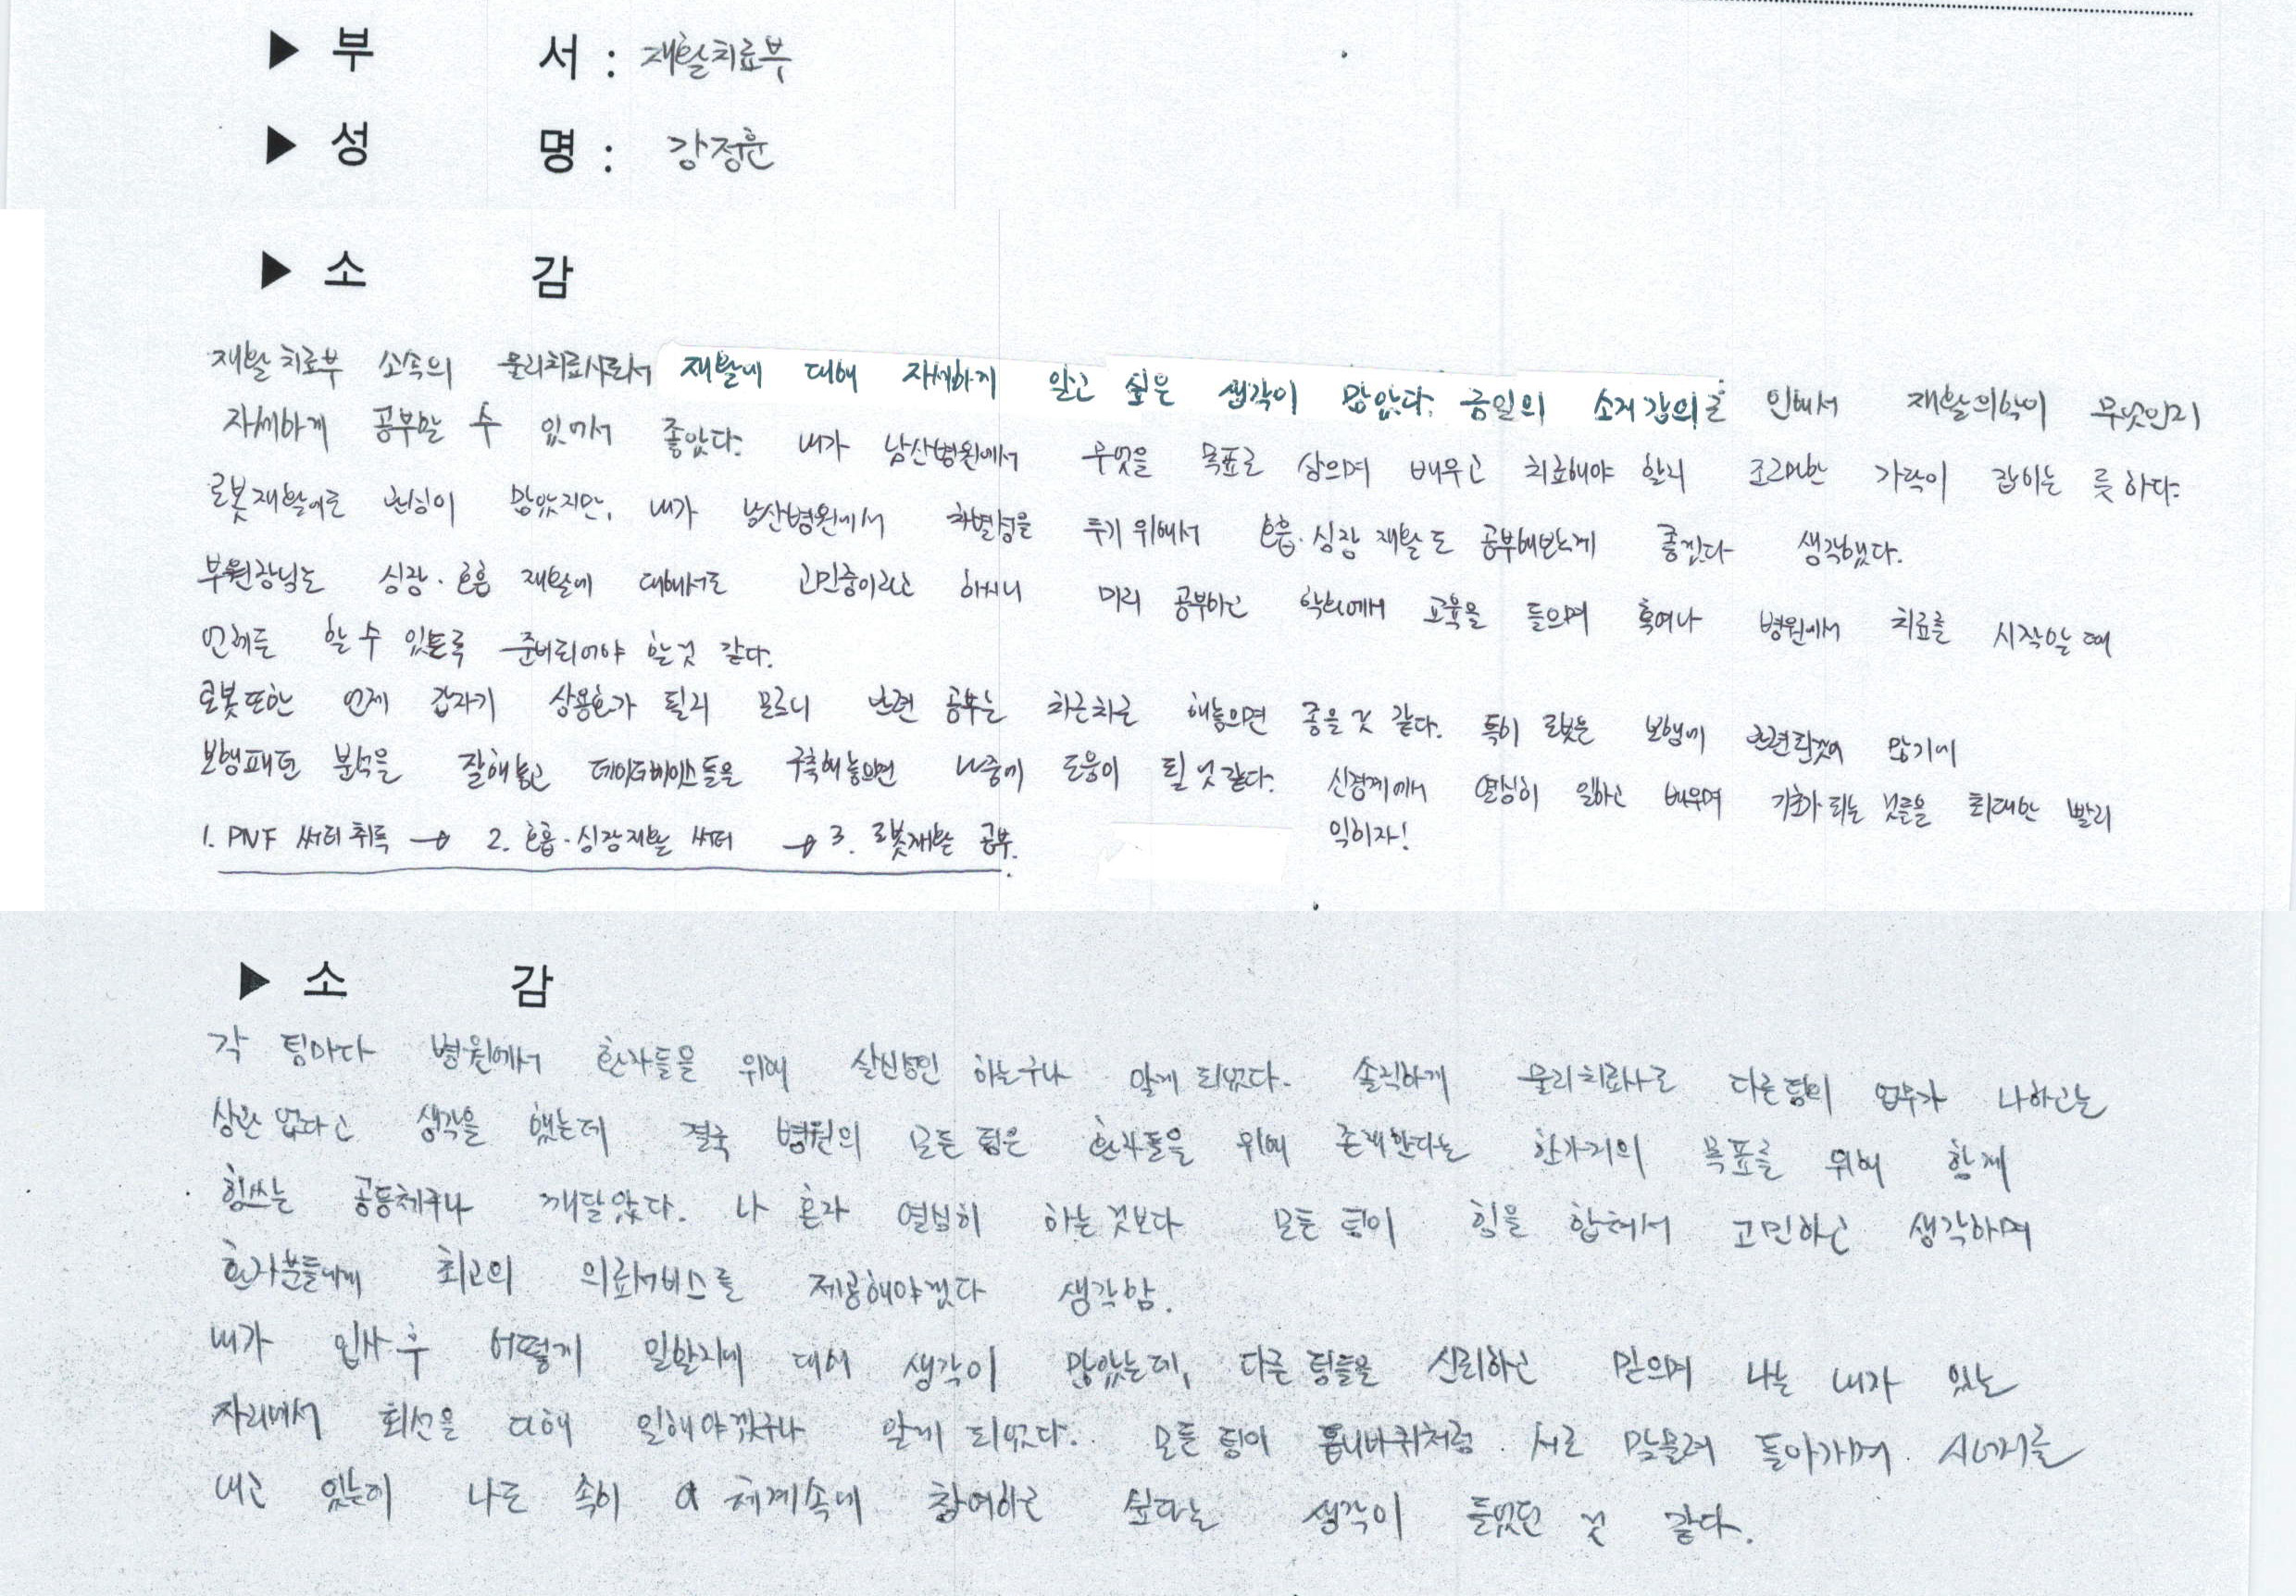 ▶ 부 서 : 재활치료부
▶ 성 명 : 강정훈
▶ 소 감
재활치료부 소속의 물리치료사로서 재활에 대해 자세하게 알고 싶은 생각이 많았다. 금일의 소개 강의로 인해서 재활의학이 무엇인지
자세하게 공부할 수 있어서 좋았다. 내가 남산병원에서 무엇을 목표로 삼으며 배우고 치료해야 할지 조그마한 가락이 잡히는 듯 하다.
로봇재활에도 관심이 많았지만, 내가 남산병원에서 차별성을 두기 위해서 호흡·심장 재활도 공부해보는게 좋겠다 생각했다.
부원장님도 심장·호흡 재활에 대해서도 고민중이라고 하시니 미리 공부하고 학회에서 교육을 들으며 혹여나 병원에서 치료를 시작할 때
언제든 할 수 있도록 준비되어야 할것 같다.
로봇또한 언제 갑자기 상용화가 될지 모르니 관련 공부는 차근차근 해놓으면 좋을 것 같다. 특히 로봇은 보행에 관련된것이 많기에
보행패턴 분석을 잘해놓고 데이터베이스들을 구축해놓으면 나중에 도움이 될 것 같다. 신경계에서 열심히 일하고 배우며 기초가 되는 것들을 최대한 빨리
익히자!
1. PNF 써티 취득 → 2. 호흡·심장재활 써티 → 3. 로봇재활 공부.
▶ 소 감
각 팀마다 병원에서 환자들을 위해 살신성인 하는구나 알게 되었다. 솔직하게 물리치료사로 다른팀의 업무가 나하고는
상관 없다고 생각을 했는데 결국 병원의 모든 팀은 환자들을 위해 존재한다는 한가지의 목표를 위해 함께
힘쓰는 공동체구나 깨달았다. 나 혼자 열심히 하는 것보다 모든 팀이 힘을 합쳐서 고민하고 생각하며
환자분들에게 최고의 의료서비스를 제공해야겠다 생각함.
내가 입사 후 어떻게 일할지에 대해 생각이 많았는데, 다른 팀들을 신뢰하고 믿으며 나는 내가 있는
자리에서 최선을 다해 일해야겠구나 알게 되었다. 모든 팀이 톱니바퀴처럼 서로 맞물려 돌아가며 시너지를
내고 있는데 나도 속히 이 체계속에 참여하고 싶다는 생각이 들었던 것 같다.